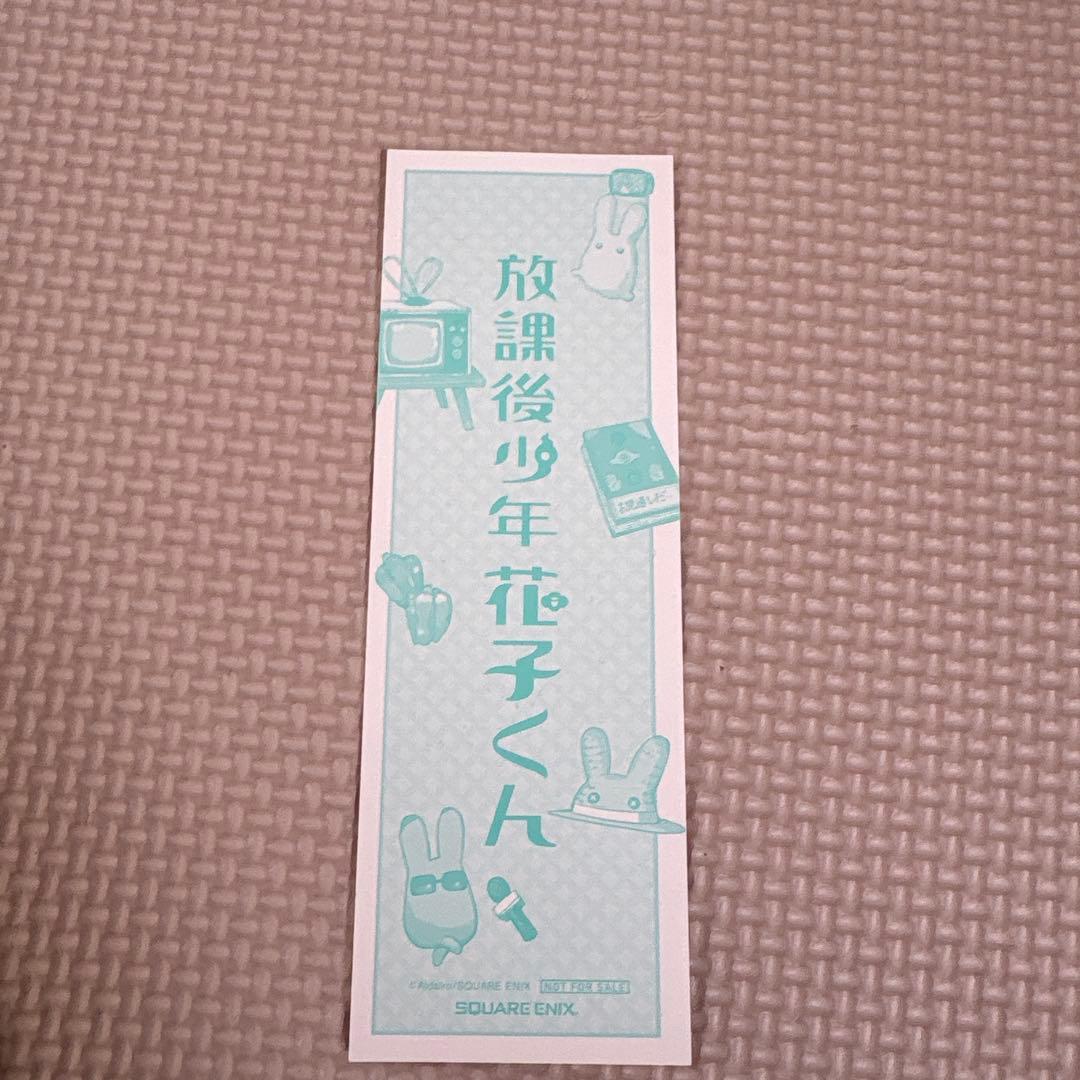 放課後少年花子くん
©AidaIro/SQUARE ENIX NOT FOR SALE
SQUARE ENIX.